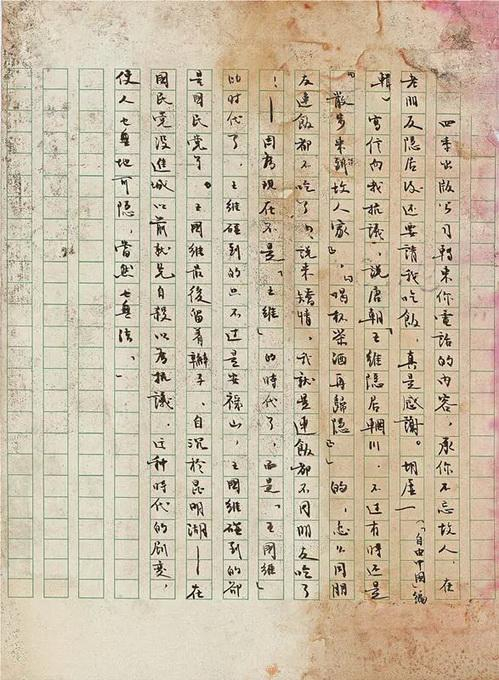 四季出版公司轉來你電話的內容，承你不忘故人，在
老朋友隱居後還要請我吃飯，真是感謝。胡虛一（「自由中國」編
輯）寫信向我抗議，說唐朝王維隱居輞川，不過有時還是
『散步來到故人家』，『喝杯茶酒再歸隱』的，怎么同朋
友連飯都不吃了，說來矯情，我就是連飯都不同朋友吃了
！——因為現在不是「王維」的時代了，而是「王國維」
的時代了，王維碰到的只不過是安祿山，王國維碰到的卻
是國民黨了。王國維最後留着辮子，自沉於昆明湖——在
國民黨沒進城以前就先自殺以為抗議，这种時代的劇變，
使人無地可隱，當然無法